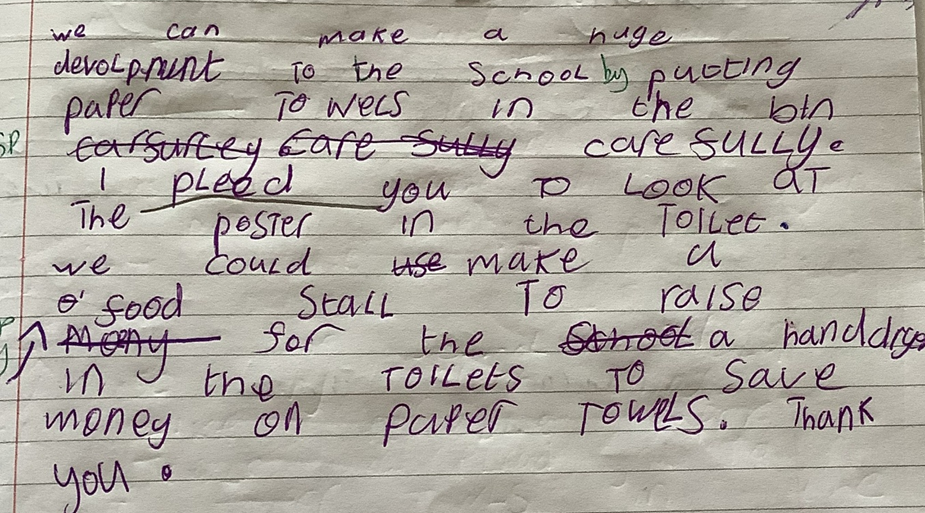 we can make a huge
devolpmnt To the School by putting
paper TO wels in the bin
sp carsurley care sully care SULLYe
I pleed you TO LOOK aT
The poster in the TOiLeT.
we could use make a
o' food Stall TO raise
Mony for the School a handdrys
in the TOiLeTS TO Save
money on Paper TOWeLS. Thank
you.